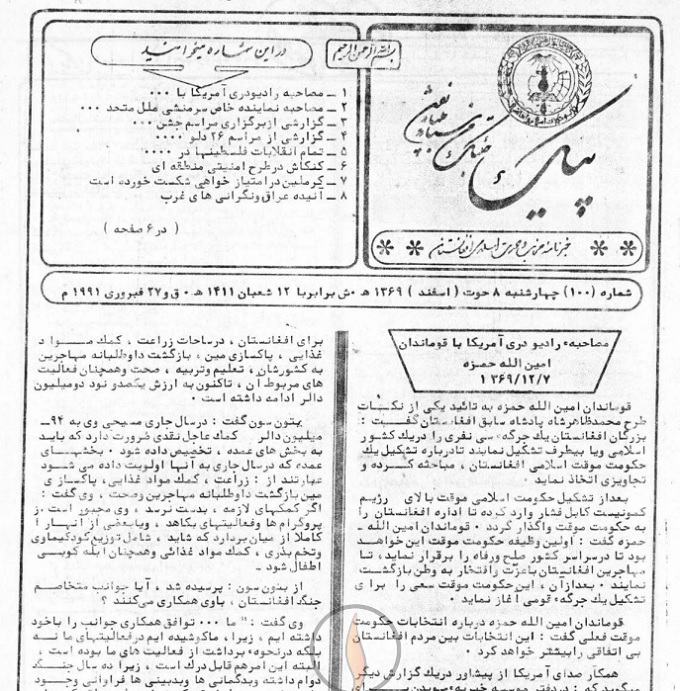 بسم الله الرحمن الرحیم
در این شماره میخوانید
۱ ــ مصاحبه رادیودری آمریکا با ۰۰۰
۲ ــ مصاحبه نماینده خاص سرمنشی ملل متحد ۰۰۰
۳ ــ گزارشی از برگزاری مراسم جشن ۰۰۰
۴ ــ گزارشی از مراسم ۲۶ دلو ۰۰۰۰
۵ ــ تمام انقلابات فلسطینها در ۰۰۰۰
۶ ــ کنکاش درطرح امنیتی منطقه ای
۷ ــ کرملین در امتیاز خواهی شکست خورده است
۸ ــ آئیده عراق ونگرانی های غرب
( در ۶ صفحه )
پیک
خبرنامه حزب وحدت اسلامی افغانستان
شماره (۱۰۰) چهارشنبه ۸ حوت ( اسفند ) ۱۳۶۹ هـ ۰ش برابر با ۱۲ شعبان ۱۴۱۱ هـ ۰ ق و ۲۷ فبروری ۱۹۹۱ م
مصاحبه رادیو دری آمریکا با قوماندان
امین الله حمزه
۱۳۶۹/۱۲/۷
قوماندان امین الله حمزه به تائید یکی از نکسیات
طرح محمدظاهرشاه پادشاه سابق افغانستان گفت :
بزرگان افغانستان یك جرگه سی نفری را دریك کشور
اسلامی ویا بیطرف تشکیل نمایند تادرباره تشکیل یك
حکومت موقت اسلامی افغانستان ، مباحثه کرده و
تجاویزی اتخاذ نماید ۰
بعداز تشکیل حکومت اسلامی موقت بالای رژیم
کمونیست کابل فشار وارد کرده تا اداره افغانستان را
به حکومت موقت واگذار کردد ۰ قوماندان امین الله ــ
حمزه گفت : اولین وظیفه حکومت موقت این خواهد
بود تا درسراسر کشور صلح ورفاه را برقرار نماید، تا
مهاجرین افغانستان باعزت وافتخار به وطن بازگشت
نمایند ۰ بعدازآن ، این حکومت موقت سعی را برای
تشکیل یك جرگه قومی آغاز نماید ۰
قوماندان امین الله حمزه درباره انتخابات حکومت
موقت فعلی گفت : این انتخابات بین مردم افغانستان
بی اتفاقی را بیشتر خواهد کرد ۰
همکار صدای آمریکا از پیشاور دریك گزارش دیگر
برای افغانستان ، درساحات زراعت ، کمك مواد
غذایی ، پاکسازی مین ، بازگشت داوطلبانه مهاجرین
به کشورشان ، تعلیم وتربیه ، صحت وهمچنان فعالیت
های مربوط آن ، تاکنون به ارزش یکصدو نود دومیلیون
دالر ادامه داشته است ۰
بنون سون گفت : درسال جاری مسیحی وی به ۹۴ــ
میلیون دالر کمك عاجل نقدی ضرورت دارد که باید
به بخش های عمده ، تخصیص داده شود ۰ بخشهای
عمده که درسال جاری به آنها اولویت داده می شود
عبارتند از : زراعت ، کمك مواد غذایی، پاکسازی
مین بازگشت داوطلبانه مهاجرین وصحت ، وی گفت :
اگر کمکهای لازمه ، بدست نرسد ، وی مجبور است از
پروگرام ها وفعالیتهای بکاهد ، ویابعضی از انهار ا
کاملا از میان بردارد که شاید ، شامل توزیع کودکیماوی
وتخم بذری ، کمك مواد غذائی وهمچنان ابله کوبی
اطفال شود ــ
از بنون سون : پرسیده شد ، آیا جوانب متخاصم
جنگ افغانستان ، باوی همکاری می کنند ؟
وی گفت : " ما ۰۰۰ توافق همکاری جوانب را باخود
داشته ایم ، زیرا ، ماکوشیده ایم درفعالیتهای ما نه
بلکه درنحوه برداشت از فعالیت های ما بوده است ،
البته این امرهم قابل درك است ، زیرا ده سال جنگ
دوام داشته وبدگمانی ها وبدبینی ها فراوانی وجود